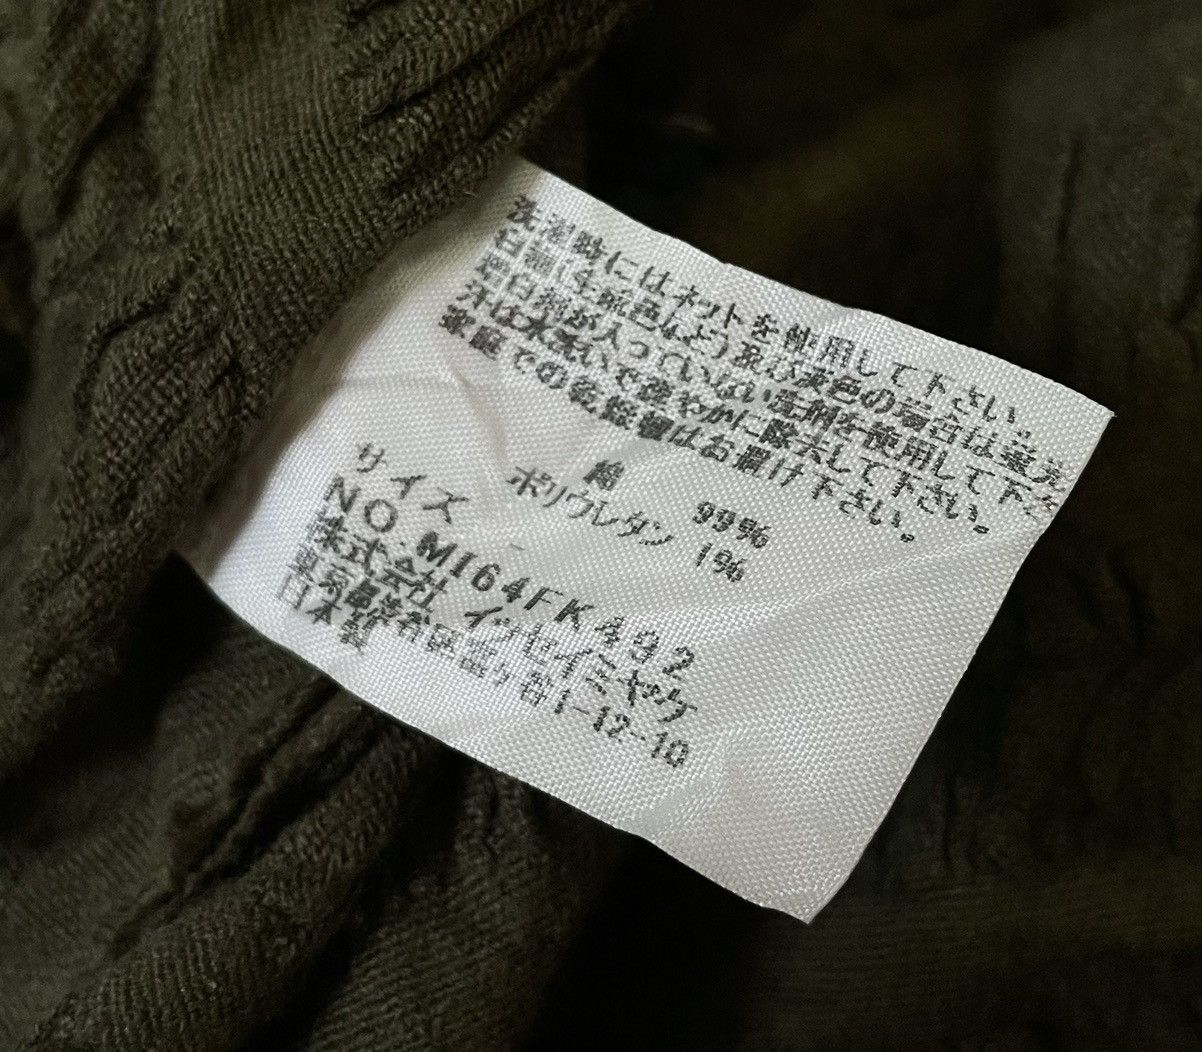 洗濯時にはネットを使用して下さい。
白錆(生成色など)及び淡色の場合は蛍光
増白剤が入っていない洗剤を使用して下さい。
汗は水洗いで速やかに除去して下さい。
家庭での乾燥機はお避け下さい。
綿 99%
ポリウレタン 1%
サイズ -
NO.MI64FK492
株式会社 イッセイミヤケ
東京都渋谷区富ヶ谷1-12-10
日本製